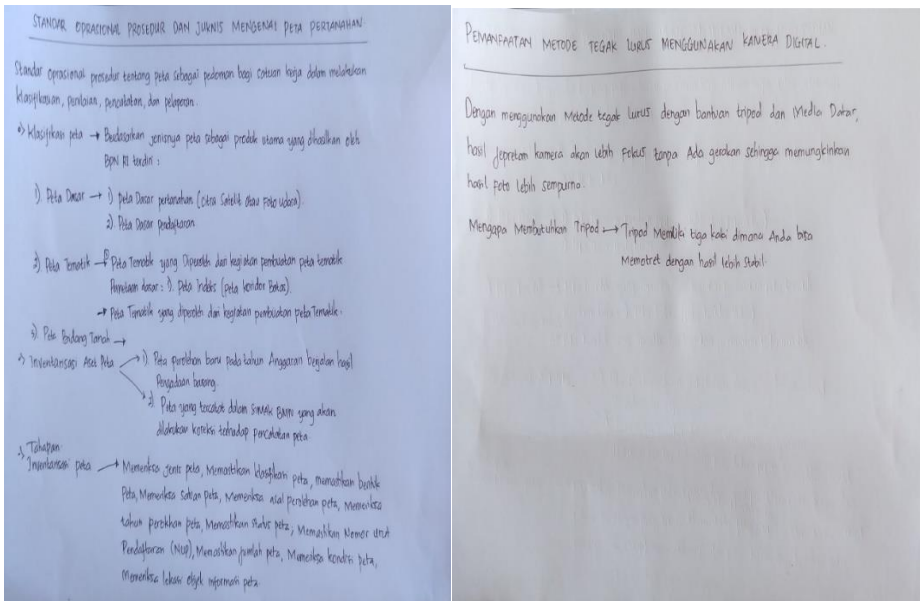 STANDAR OPRASIONAL PROSEDUR DAN JUKNIS MENGENAI PETA PERTANAHAN.
Standar oprasional prosedur tentang peta sebagai pedoman bagi satuan kerja dalam melakukan
klasifikasian, penilaian, pencatatan, dan pelaporan.
Klasifikasi peta → Berdasarkan jenisnya peta sebagai produk utama yang dihasilkan oleh
BPN RI terdiri :
1) Peta Dasar → 1) peta Dasar pertanahan (Citra Satelit atau Foto Udara).
2) Peta Dasar pendaftaran
2) Peta Tematik → Peta Tematik yang Diperoleh dari kegiatan pembuatan peta tematik
Pemetaan dasar : 1). Peta Indeks (peta koridor Batas).
→ Peta Tematik yang diperoleh dari kegiatan pembuatan peta Tematik.
3) Peta Bidang Tanah →
Inventarisasi Aset Peta → 1). Peta perolehan baru pada tahun Anggaran berjalan hasil
Pengadaan barang.
2) Peta yang tercatat dalam SIMAK BMN yang akan
dilakukan koreksi terhadap pencatatan peta.
Tahapan
Inventarisasi peta → Memeriksa jenis peta, Memastikan klasifikasi peta, memastikan bentuk
Peta, Memeriksa satuan peta, Memeriksa nilai perolehan peta, Memeriksa
tahun perolehan peta, Memastikan status peta, Memastikan Nomor urut
Pendaftaran (NUP), Memastikan jumlah peta, Memeriksa kondisi peta,
Memeriksa lokasi objek informasi peta.
PEMANFAATAN METODE TEGAK LURUS MENGGUNAKAN KAMERA DIGITAL.
Dengan menggunakan Metode tegak Lurus dengan bantuan tripod dan Media Datar,
hasil jepretan kamera akan lebih fokus tanpa Ada gerakan sehingga memungkinkan
hasil foto lebih sempurna.
Mengapa Membutuhkan Tripod → Tripod Memiliki tiga kaki dimana Anda bisa
Memotret dengan hasil lebih stabil.